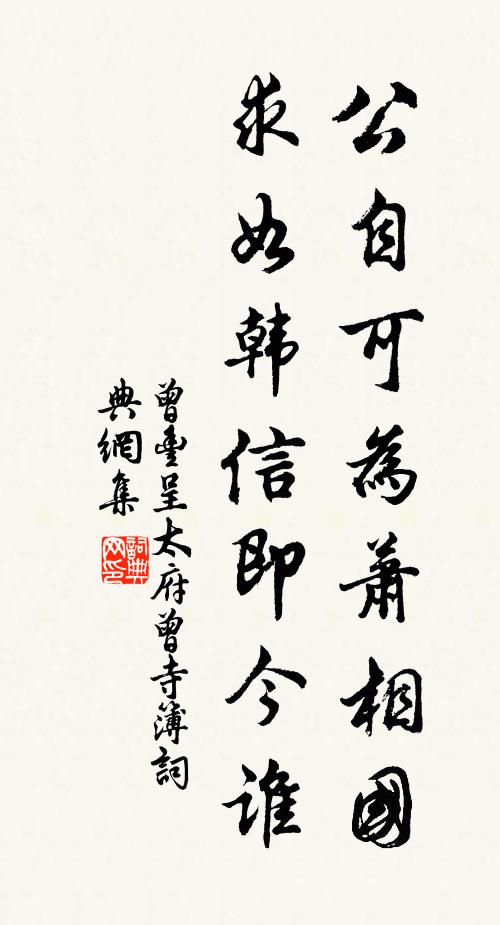 公自可為蕭相國
求如韩信即今誰
曾豐呈太府曾寺簿詞
典網集
詞典网印